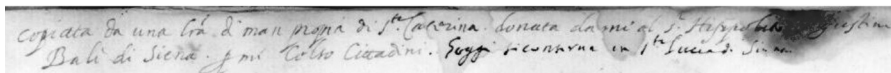 copiata da una lrã di man propria di S.ta Caterina donata da mi al S.r Hippolito Agostini
Balì di Siena. p mi Celso Cittadini. Hoggi si conserva in S.ta Lucia di Siena